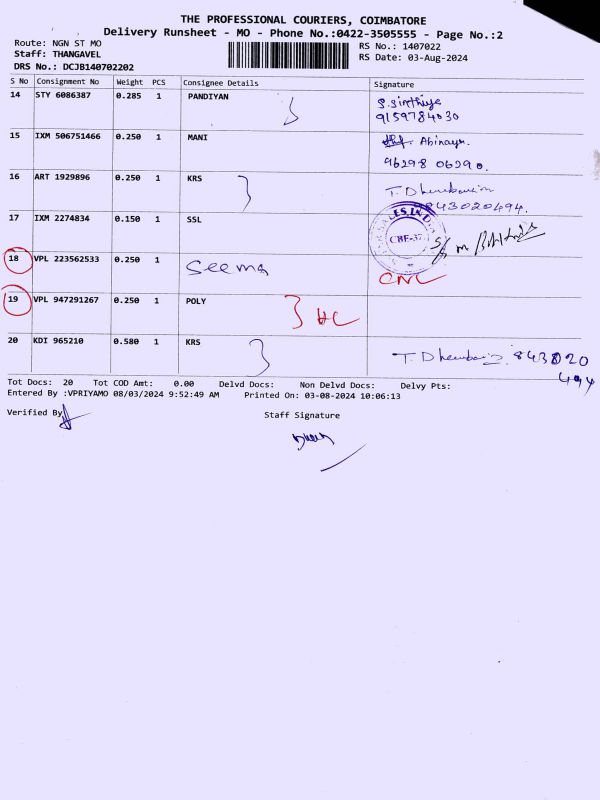 THE PROFESSIONAL COURIERS, COIMBATORE
Delivery Runsheet - MO - Phone No.:0422-3505555 - Page No.:2
Route: NGN ST MO
Staff: THANGAVEL
DRS No.: DCJB140702202
RS No.: 1407022
RS Date: 03-Aug-2024
S No Consignment No Weight PCS Consignee Details Signature
14 STY 6086387 0.285 1 PANDIYAN S. Sinthiya
9159784030
15 IXM 506751466 0.250 1 MANI Abinaya.
96298 06290.
16 ART 1929896 0.250 1 KRS T. D
8843020494.
17 IXM 2274834 0.150 1 SSL
CBE-37
18 VPL 223562533 0.250 1 Seema CNL
19 VPL 947291267 0.250 1 POLY
20 KDI 965210 0.580 1 KRS T. D 843020
494
Tot Docs: 20 Tot COD Amt: 0.00 Delvd Docs: Non Delvd Docs: Delvy Pts:
Entered By :VPRIYAMO 08/03/2024 9:52:49 AM Printed On: 03-08-2024 10:06:13
Verified By
Staff Signature